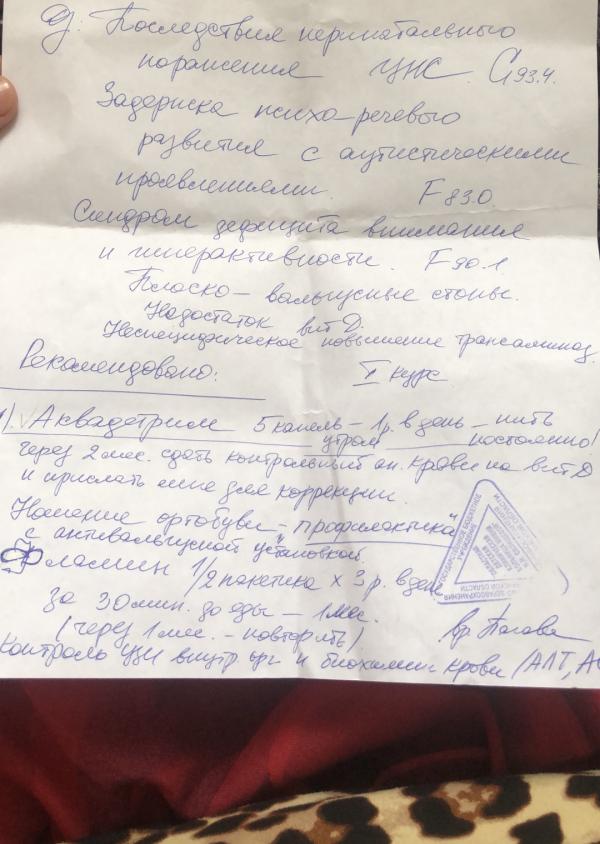 Д: Последствия перинатального
поражения ЦНС. G93.4.
Задержка психо-речевого
развития с аутистическими
проявлениями. F83.0.
Синдром дефицита внимания
и гиперактивности. F90.1
Плоско-вальгусные стопы.
Недостаток вит Д.
Неспецифическое повышение трансаминаз.
Рекомендовано: I курс
1). Аквадетрим 5 капель – 1р. в день – пить
утром постоянно!
через 2 мес. сдать контрольный ан. крови на вит Д
и прислать мне для коррекции.
Ношение ортобуви – "профилактика"
с антивальгусной установкой.
Фламин 1/2 пакетика х 3 р. в день
за 30 мин. до еды – 1 мес.
(через 1 мес. – повторить)
Контроль УЗИ внутр орг и биохимии крови (АЛТ,
ГОСУДАРСТВЕННОЕ БЮДЖЕТНОЕ
УЧРЕЖДЕНИЕ
ЗДРАВООХРАНЕНИЯ
ОБЛАСТИ